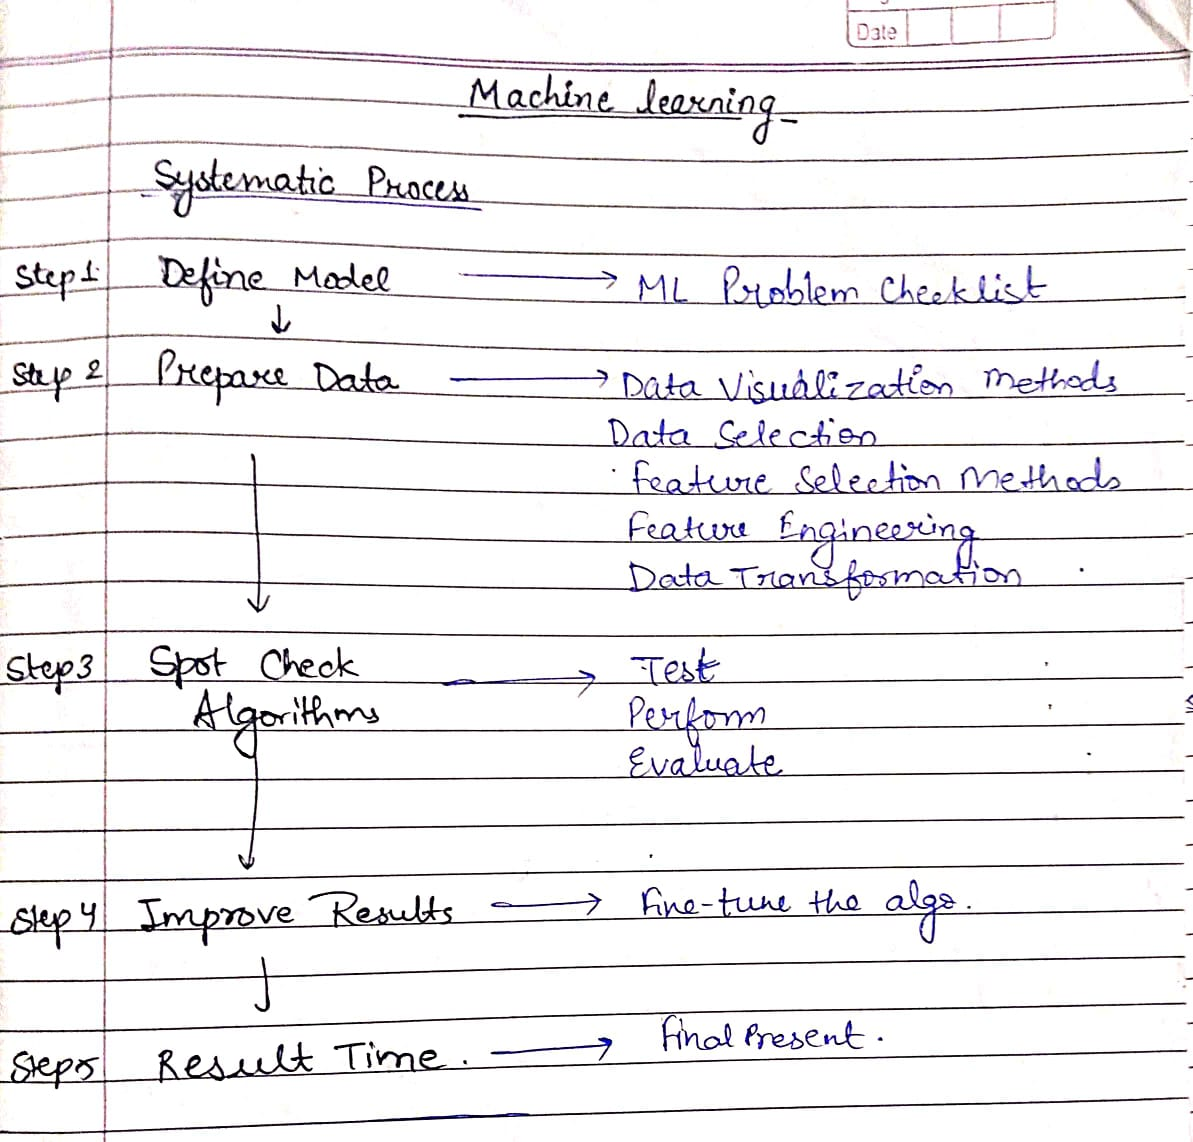 Date
Machine learning
Systematic Process
Step 1: Define Model → ML Problem Checklist
↓
Step 2 Prepare Data → Data Visualization Methods
Data Selection
Feature Selection Methods
Feature Engineering
Data Transformation
↓
Step 3 Spot Check → Test
Algorithms Perform
Evaluate
↓
Step 4 Improve Results → Fine-tune the algo.
↓
Step 5 Result Time. → Final Present.